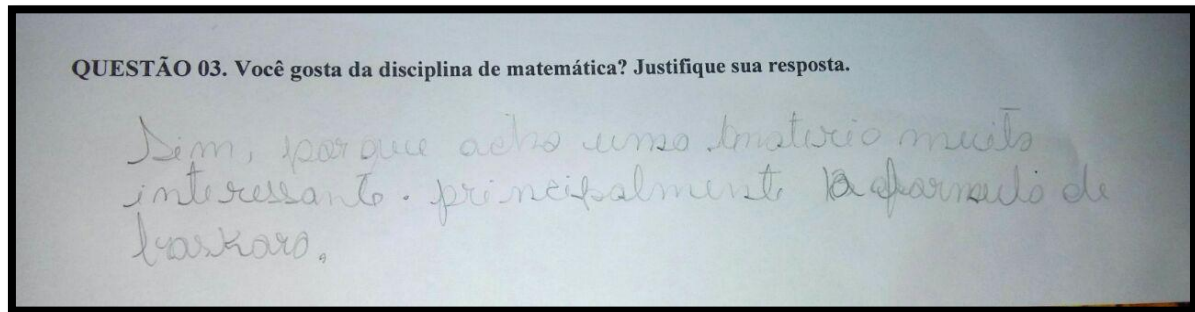 QUESTÃO 03. Você gosta da disciplina de matemática? Justifique sua resposta.
Sim, por que acho uma materia muito
interessante. principalmente a formula de
braskara.